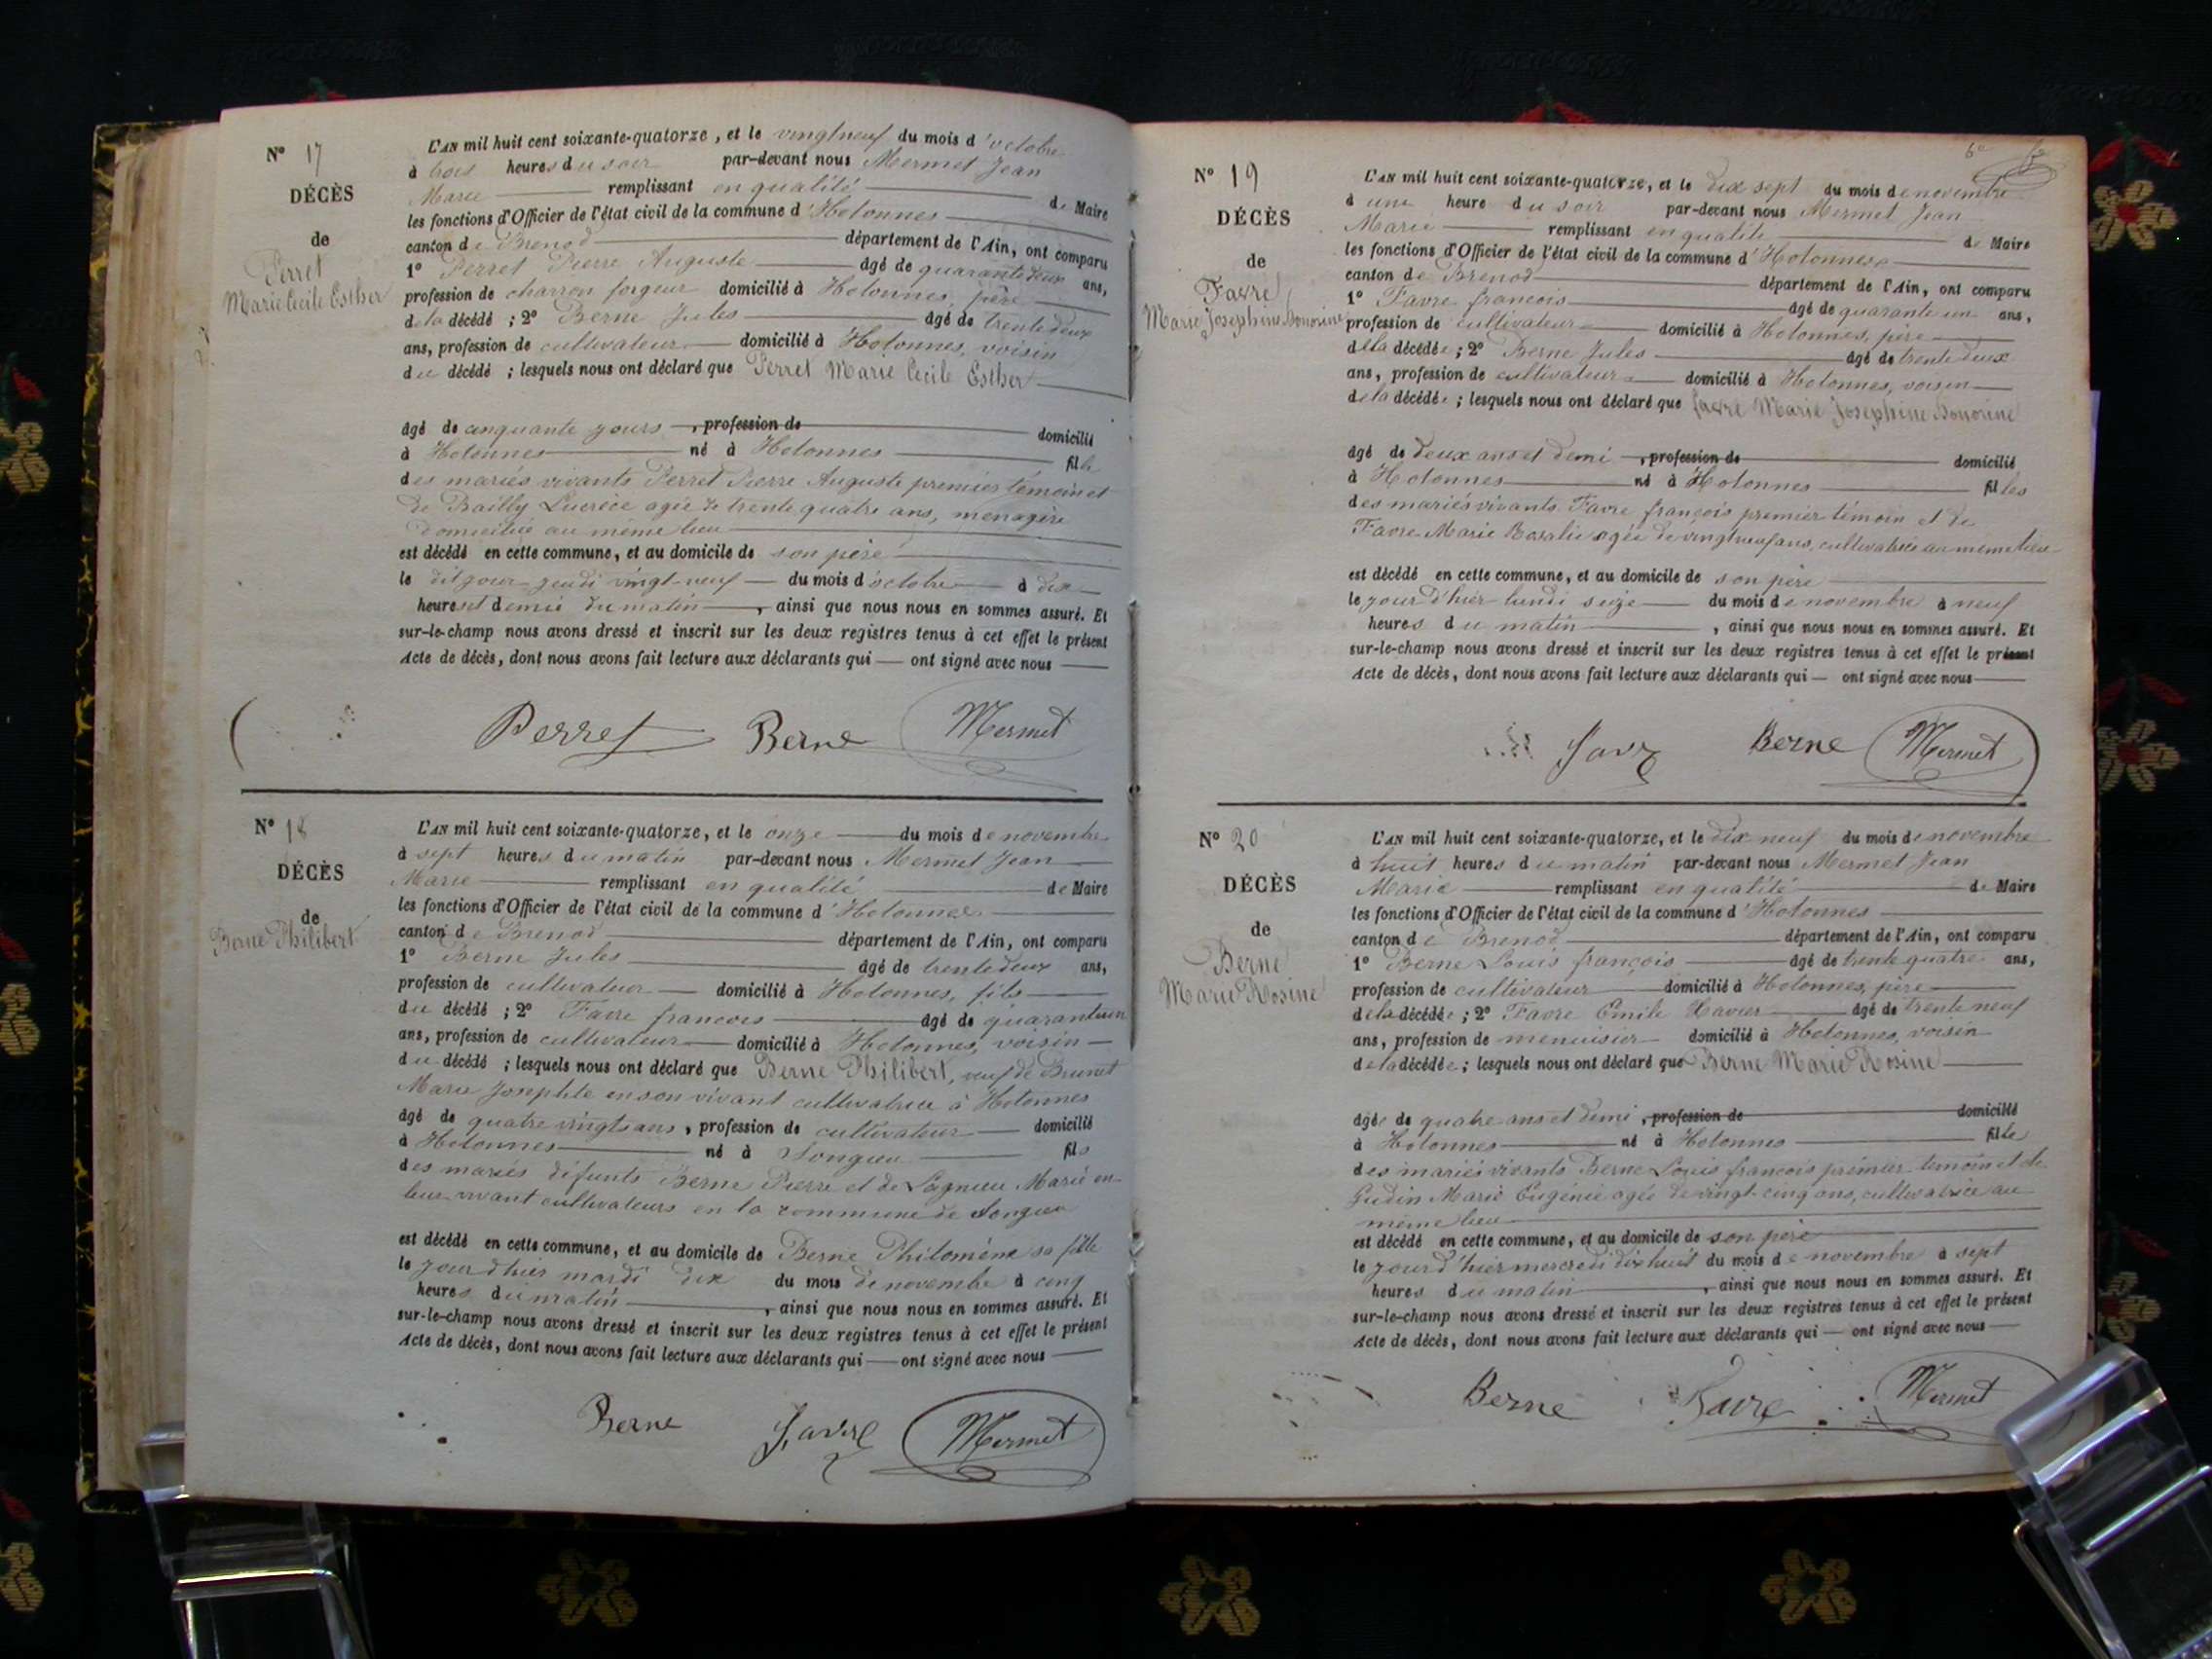 N° 17
DÉCÈS
de
Perret
Marie Cecile Esther
L'AN mil huit cent soixante-quatorze, et le vingtneuf du mois d'octobre
à trois heures du soir par-devant nous Mermet Jean
Marie remplissant en qualité de Maire
les fonctions d'Officier de l'état civil de la commune d'Hotonnes
canton de Brenod département de l'Ain, ont comparu
1° Perret Pierre Auguste âgé de quarante deux ans,
profession de charron forgeur domicilié à Hotonnes, père
de la décédé ; 2° Berne Jules âgé de trente deux
ans, profession de cultivateur domicilié à Hotonnes, voisin
du décédé ; lesquels nous ont déclaré que Perret Marie Cecile Esther
âgé de cinquante jours , profession de domicilié
à Hotonnes né à Hotonnes fille
des mariés vivants Perret Pierre Auguste premier témoin et
de Bailly Lucrèce agée de trente quatre ans, menagère
domiciliée au même lieu
est décédé en cette commune, et au domicile de son père
le dit jour jeudi vingt-neuf du mois d'octobre à dix
heures et demie du matin , ainsi que nous nous en sommes assuré. Et
sur-le-champ nous avons dressé et inscrit sur les deux registres tenus à cet effet le présent
Acte de décès, dont nous avons fait lecture aux déclarants qui — ont signé avec nous
Perret Berne Mermet
N° 18
DÉCÈS
de
Berne Philibert
L'AN mil huit cent soixante-quatorze, et le onze du mois de novembre
à sept heures du matin par-devant nous Mermet Jean
Marie remplissant en qualité de Maire
les fonctions d'Officier de l'état civil de la commune d'Hotonnes
canton de Brenod département de l'Ain, ont comparu
1° Berne Jules âgé de trente deux ans,
profession de cultivateur domicilié à Hotonnes, fils
du décédé ; 2° Favre francois âgé de quarantiun
ans, profession de cultivateur domicilié à Hotonnes, voisin
du décédé ; lesquels nous ont déclaré que Berne Philibert, veuf de Brunet
Marie Josephte en son vivant cultivatrice à Hotonnes
âgé de quatre vingts ans, profession de cultivateur domicilié
à Hotonnes né à Songieu fils
des mariés défunts Berne Pierre et de Lagnieu Marie en
leur vivant cultivateurs en la commune de Songieu
est décédé en cette commune, et au domicile de Berne Philomène sa fille
le jour d'hier mardi dix du mois de novembre à cinq
heures du matin , ainsi que nous nous en sommes assuré. Et
sur-le-champ nous avons dressé et inscrit sur les deux registres tenus à cet effet le présent
Acte de décès, dont nous avons fait lecture aux déclarants qui — ont signé avec nous
Berne Favre Mermet
N° 19
DÉCÈS
de
Favre
Marie Josephine Honorine
L'AN mil huit cent soixante-quatorze, et le dix sept du mois de novembre
à une heure du soir par-devant nous Mermet Jean
Marie remplissant en qualité de Maire
les fonctions d'Officier de l'état civil de la commune d'Hotonnes
canton de Brenod département de l'Ain, ont comparu
1° Favre francois âgé de quarante un ans,
profession de cultivateur domicilié à Hotonnes, père
de la décédée ; 2° Berne Jules âgé de trente deux
ans, profession de cultivateur domicilié à Hotonnes, voisin
de la décédée ; lesquels nous ont déclaré que favre Marie Josephine Honorine
âgé de deux ans et demi , profession de domicilié
à Hotonnes né à Hotonnes filles
des mariés vivants Favre françois premier témoin et de
Favre Marie Rosalie agée de vingt neuf ans, cultivatrice au meme lieu
est décédé en cette commune, et au domicile de son père
le jour d'hier lundi seize du mois de novembre à neuf
heures du matin , ainsi que nous nous en sommes assuré. Et
sur-le-champ nous avons dressé et inscrit sur les deux registres tenus à cet effet le présent
Acte de décès, dont nous avons fait lecture aux déclarants qui — ont signé avec nous
Favre Berne Mermet
N° 20
DÉCÈS
de
Berne
Marie Rosine
L'AN mil huit cent soixante-quatorze, et le dix neuf du mois de novembre
à huit heures du matin par-devant nous Mermet Jean
Marie remplissant en qualité de Maire
les fonctions d'Officier de l'état civil de la commune d'Hotonnes
canton de Brenod département de l'Ain, ont comparu
1° Berne Louis françois âgé de trente quatre ans,
profession de cultivateur domicilié à Hotonnes, père
de la décédée ; 2° Favre Emile Xavier âgé de trente neuf
ans, profession de menuisier domicilié à Hotonnes, voisin
de la décédée ; lesquels nous ont déclaré que Berne Marie Rosine
âgée de quatre ans et demi , profession de domicilié
à Hotonnes né à Hotonnes fille
des mariés vivants Berne Louis francois premier témoin et de
Gudin Marie Eugénie agée de vingt-cinq ans, cultivatrice au
même lieu
est décédé en cette commune, et au domicile de son père
le jour d'hier mercredi dix huit du mois de novembre à sept
heures du matin , ainsi que nous nous en sommes assuré. Et
sur-le-champ nous avons dressé et inscrit sur les deux registres tenus à cet effet le présent
Acte de décès, dont nous avons fait lecture aux déclarants qui — ont signé avec nous
Berne Favre Mermet